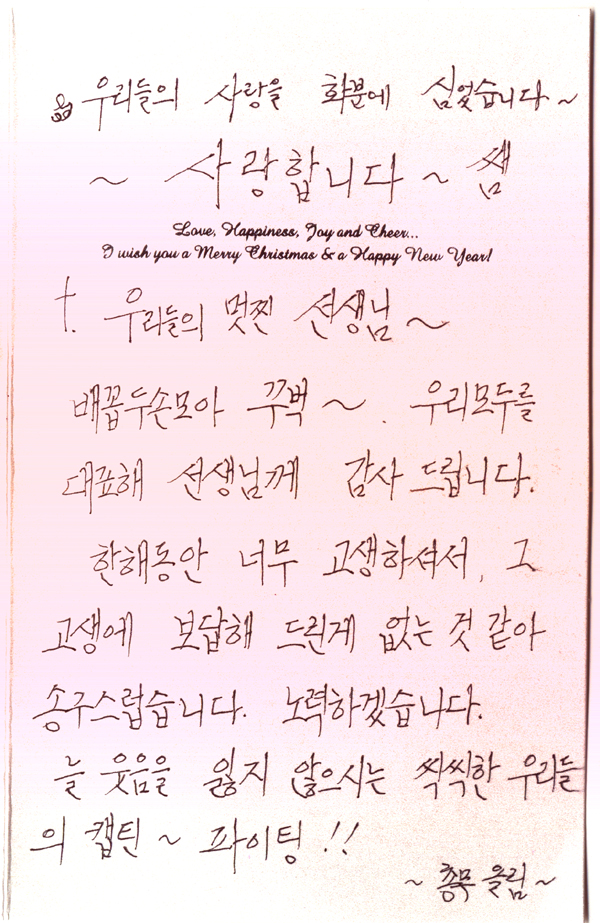 우리들의 사랑을 화분에 심었습니다~
~ 사랑합니다 ~ 쌤
Love, Happiness, Joy and Cheer...
I wish you a Merry Christmas & a Happy New Year!
우리들의 멋찐 선생님~
배꼽두손모아 꾸벅~. 우리모두를
대표해 선생님께 감사 드립니다.
한해동안 너무 고생하셔서, 그
고생에 보답해 드린게 없는 것 같아
송구스럽습니다. 노력하겠습니다.
늘 웃음을 잃지 않으시는 씩씩한 우리들
의 캡틴 ~ 파이팅!!
~ 총무 올림 ~